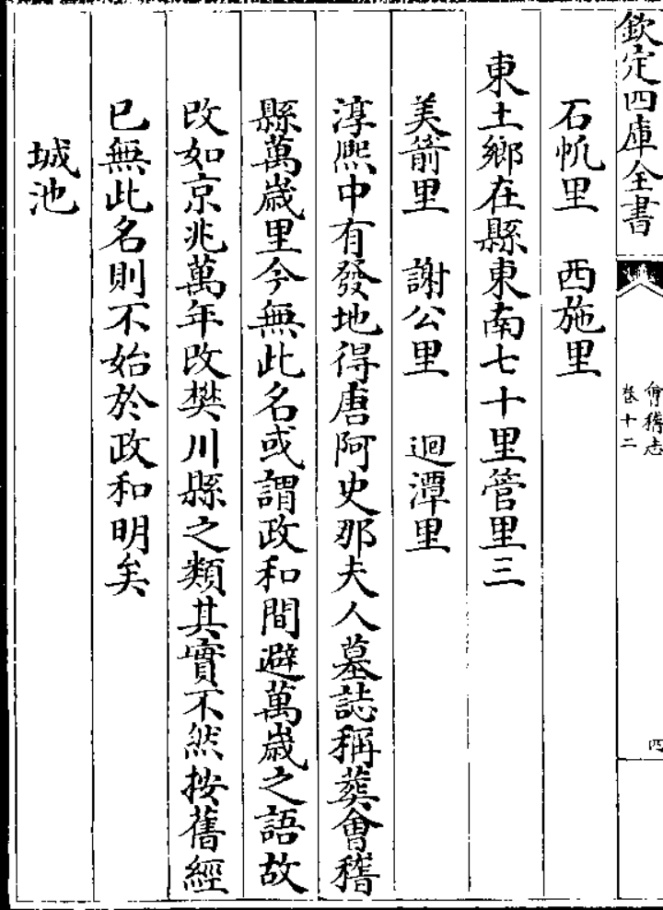 欽定四庫全書
會稽志
卷十二
四
石帆里　西施里
東土鄉在縣東南七十里管里三
美箭里　謝公里　迴潭里
淳熙中有發地得唐阿史那夫人墓誌稱葬會稽
縣萬歲里今無此名或謂政和間避萬歲之語故
改如京兆萬年改樊川縣之類其實不然按舊經
已無此名則不始於政和明矣
城池